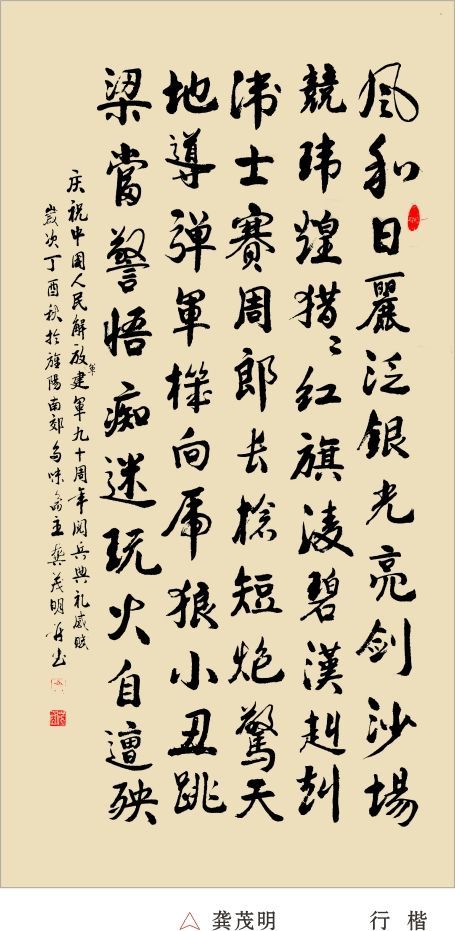 風和日麗泛銀光亮劍沙場
競玮煌猎〻红旗凌碧漢赳赳
衛士賽周郎长枪短炮驚天
地導弹軍機向虎狼小丑跳
梁當警悟痴迷玩火自遭殃
庆祝中國人民解放軍建軍九十周年阅兵典礼感賦
歲次丁酉秋於旌陽南郊味斋主龔茂明并书
龚茂明 行楷